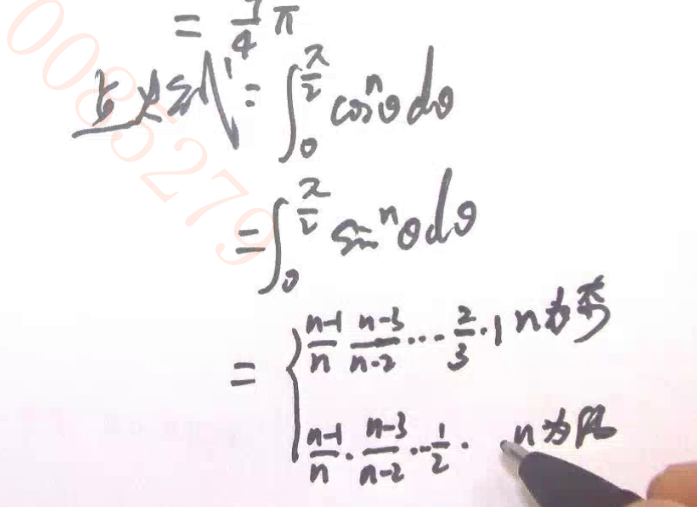 = π/4
点火公式: ∫₀^{π/2} cosⁿθdθ
= ∫₀^{π/2} sinⁿθdθ
= { (n-1)/n (n-3)/(n-2) ... 2/3 · 1 n为奇
(n-1)/n · (n-3)/(n-2) ... 1/2 · n为偶
0085279